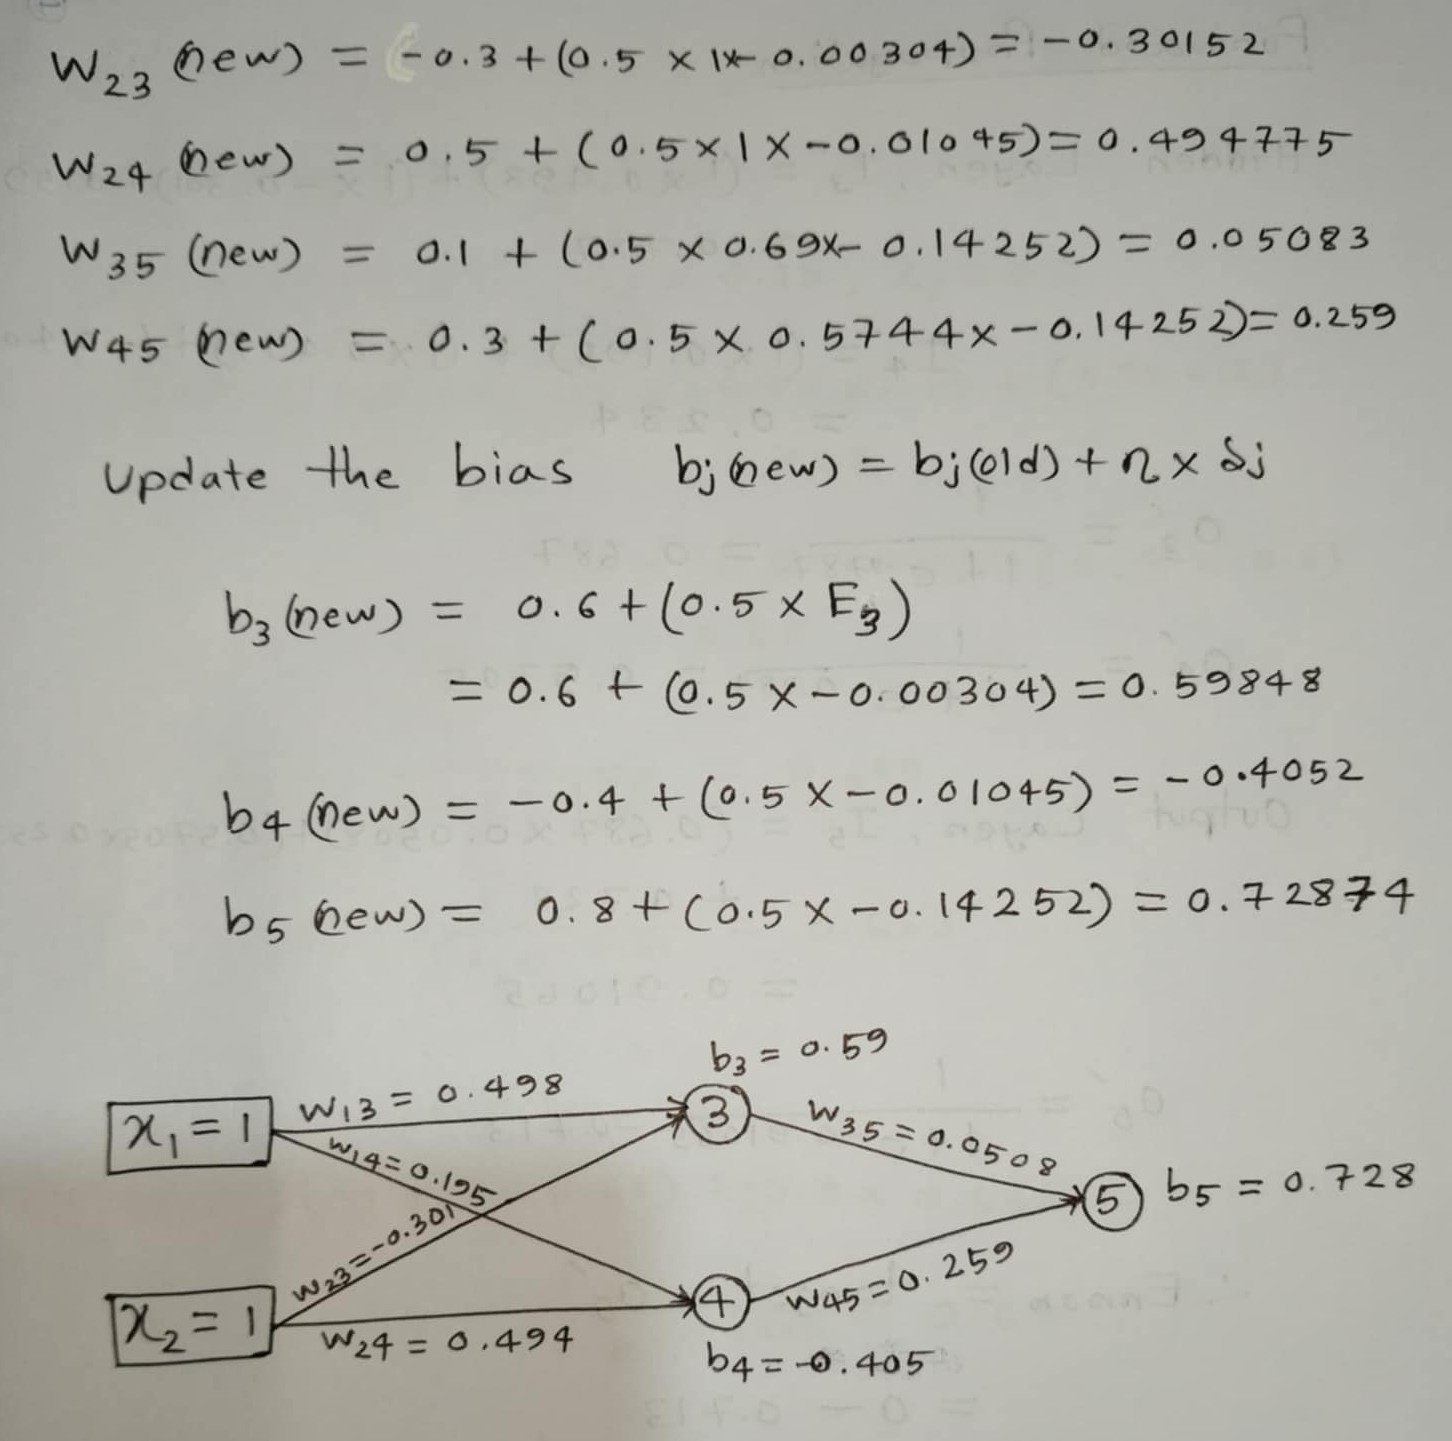 W23 (new) = -0.3 + (0.5 × 1×-0.00304) = -0.30152
W24 (new) = 0.5 + (0.5×1×-0.01045) = 0.494775
W35 (new) = 0.1 + (0.5 × 0.69×-0.14252) = 0.05083
W45 (new) = 0.3 + (0.5 × 0.5744×-0.14252) = 0.259
Update the bias bj(new) = bj(old) + η × δj
b3 (new) = 0.6 + (0.5 × E3)
= 0.6 + (0.5 × -0.00304) = 0.59848
b4 (new) = -0.4 + (0.5 × -0.01045) = -0.4052
b5 (new) = 0.8 + (0.5 × -0.14252) = 0.72874
b3 = 0.59
x1 = 1 W13 = 0.498 3 W35 = 0.0508
W14 = 0.195
5 b5 = 0.728
W23 = -0.301
x2 = 1 W24 = 0.494 4 W45 = 0.259
b4 = -0.405